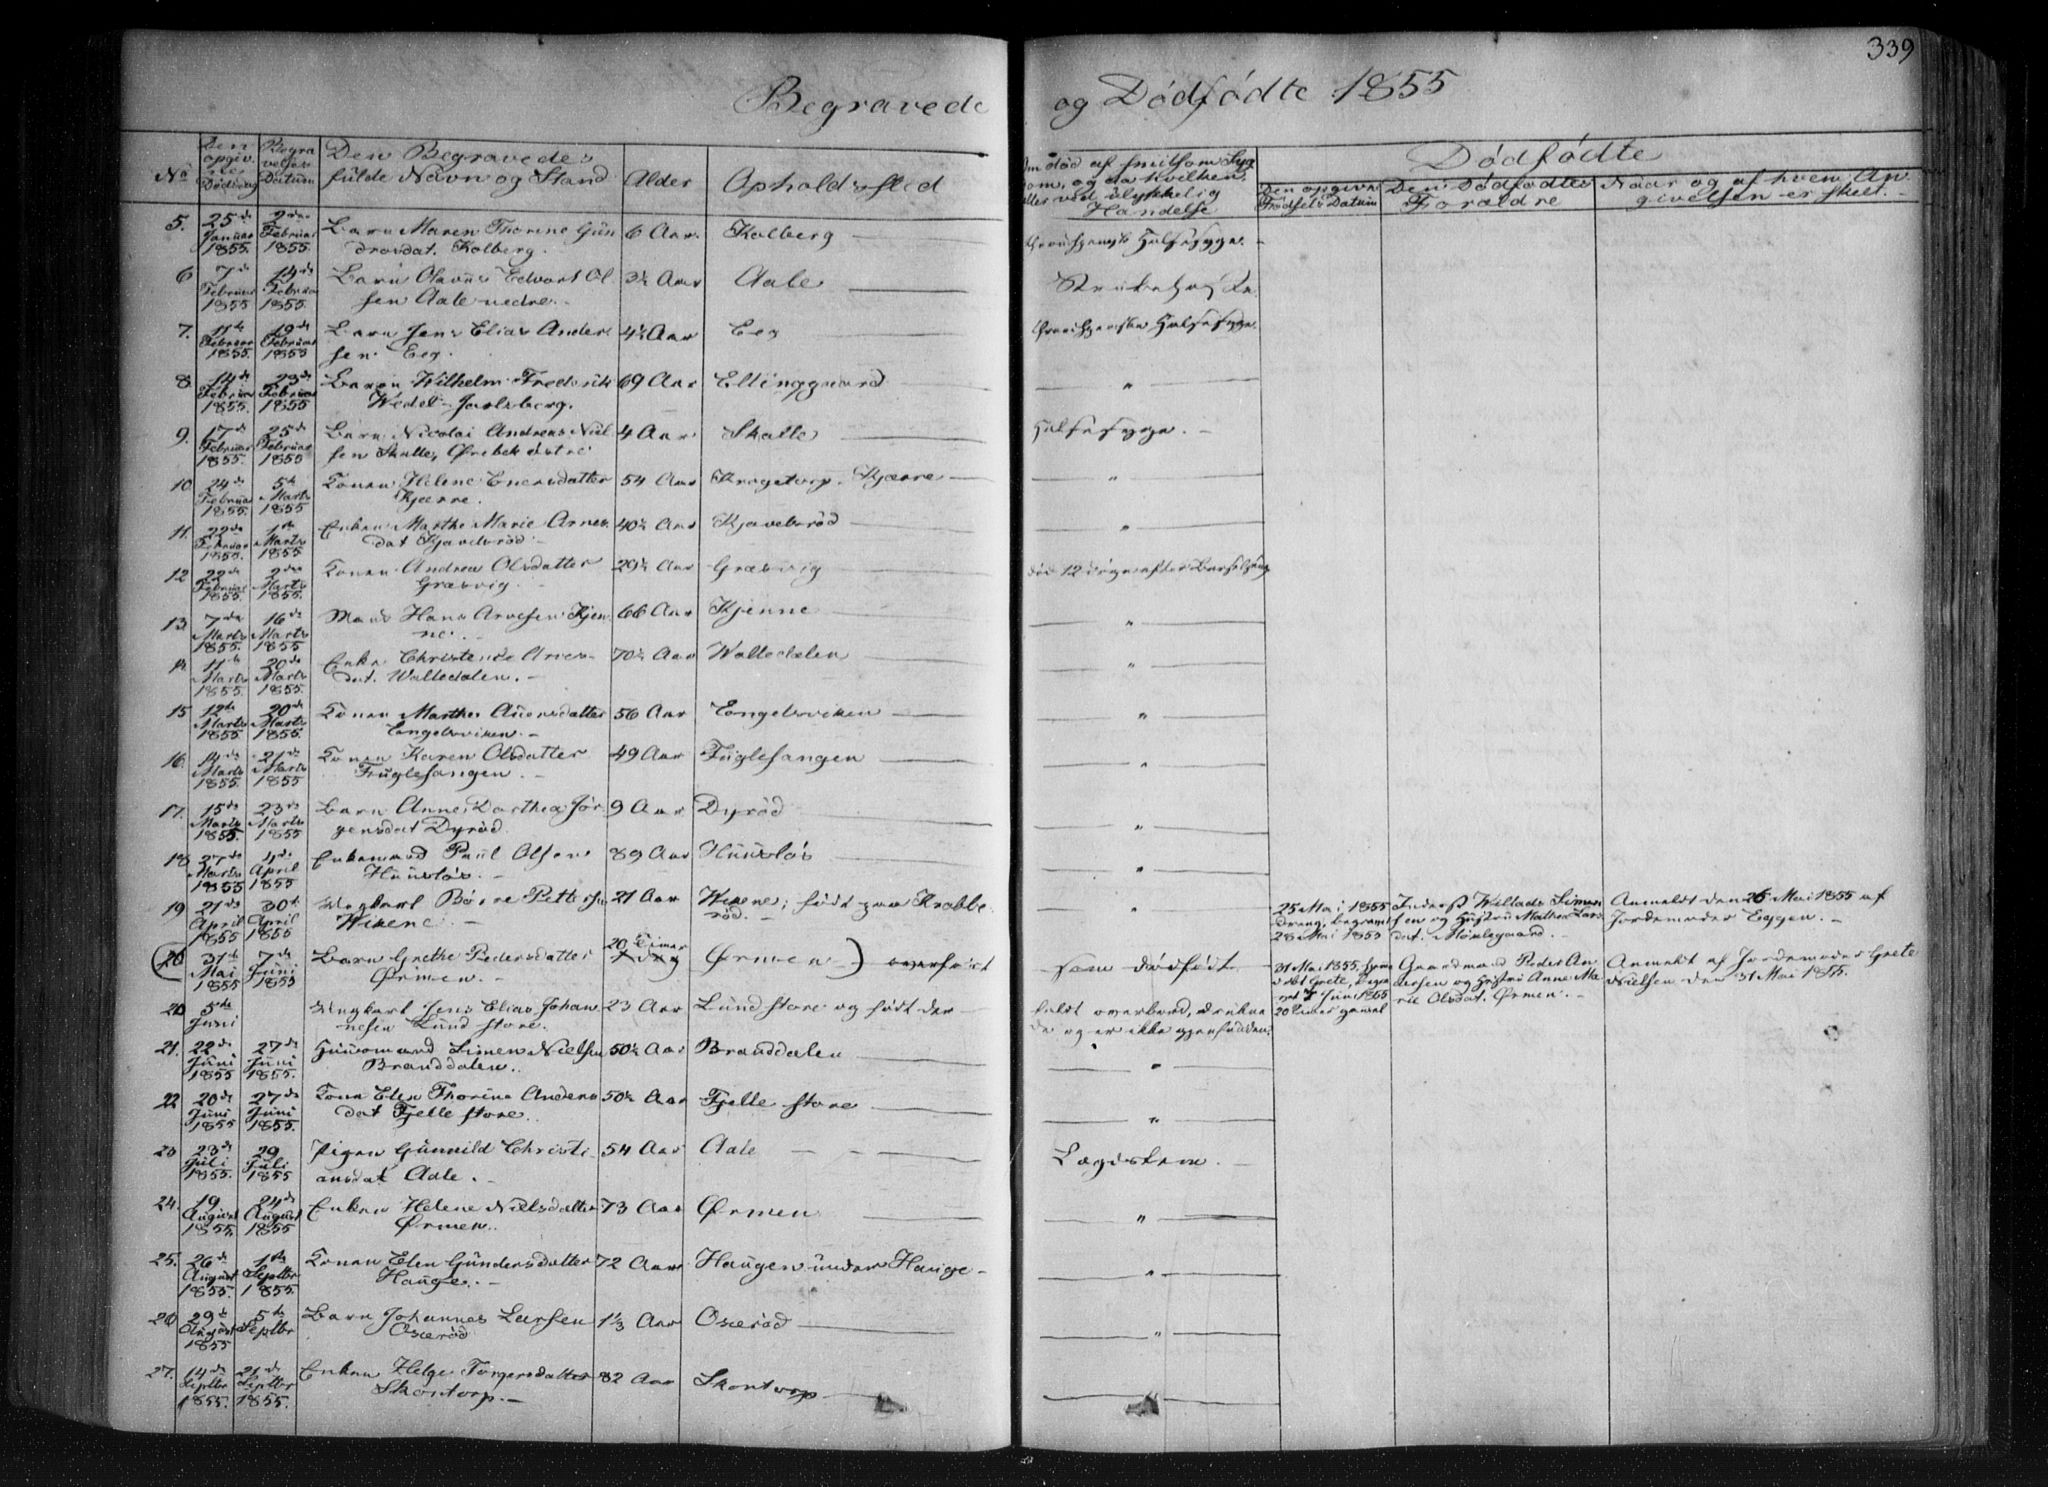 339
Begravede og Dødfødte 1855
No
Den opgivne Dødsdag
Begravelses Datum
Den Begravedes fulde Navn og Stand
Alder
Opholdssted
Om død af smitsom Syg
dom, og da hvilken,
eller ved ulykkelig
Hændelse
Dødfødte
Den opgivne Fødsels Datum
Den Dødfødtes Forældre
Naar og af hvem Angivelsen er skeet.
5. 25de Januar 1855. 2den Februar 1855 Barn Maren Thorine Gun 6 Aar. Kalberg
drosdat. Kalberg. Halssyge.
6 7de Februar 1855 14de Februar 1855. Barn Olavus Edvart Ol 3½ Aar Aale
sen Aale nedre.
7. 11te Februar 1855. 19de Februar 1855 Barn Jens Elias Ander 4½ Aar Eeg Halssyge
sen Eeg.
8. 14de Februar 1855. 23de Februar 1855. Baron Wilhelm Frederik 69 Aar Ellinggaard "
Wedel-Jarlsberg.
9. 17de Februar 1855. 25de Februar 1855 Barn Nicolai Andreas Niel 4 Aar Skalle Halssyge.
sen Skalle, Ørebek østre
10 24de Februar 1855. 5te Marts 1855 Konen Helene Enersdatter 54 Aar Krogstorp Kjærre "
Kjærre.
11. 22de Februar 1855. 1te Marts 1855 Enken Marthe Marie Arnes 40½ Aar Kjavelsrød "
dat Kjavelsrød
12 22de Februar 1855. 2den Marts 1855. Konen Andrea Olsdatter 29½ Aar Græsvig død 12 Dage efter Barselseng
Græsvig.
13. 7de Marts 1855. 16de Marts 1855 Mand Hans Arvesen Kjen 66 Aar Kjenne "
ne.
14 11te Marts 1855. 20de Marts 1855. Enke Christense Arnes 70½ Aar Walledalen "
dat. Walledalen.
15 12te Marts 1855 20de Marts 1855. Konen Marthe Auensdatter 56 Aar Engelsviken "
Engelsviken.
16. 14de Marts 1855. 21de Marts 1855 Konen Karen Olsdatter 49 Aar Fuglesangen "
Fuglesangen.
17. 15de Marts 1855. 23de Marts 1855 Barn Anne Dorthea Jør 9 Aar Dyrød "
gensdat Dyrød
18. 27de Marts 1855 4de April 1855 Enkemand Paul Olsen 89 Aar Huusløs "
Huusløs.
19 21de April 1855 30te April 1855 Ungkarl Børre Petters 21 Aar Wikene, født paa Krabbe "
Wikene. rød.
25 Mai 1855
Dreng, begravet
28 Mai 1855
Inderst Willads Simen
sen og Hustru Mathea Lars
dat. Mønlegaard.
Anmeldt den 26 Mai 1855 af
Jordemoder Eggen.
(20 31te Mai 1855 7de Juni 1855 Barn Grethe Pedersdatter 20 Timer 1 Dag Ørmen) overført
Ørmen. som dødfødt
31 Mai 1855, hjem
døbt Grete, begra
vet 7 Juni 1855
20 Timer gammel
Gaardmand Peder An
dersen og Hustru Anne Ma
rie Olsdat. Ørmen.
Anmeldt af Jordemoder Grete
Nielsen den 31 Mai 1855.
20 5te Juni Ungkarl Jens Elias Johan 23 Aar Lund store og født der
nesen Lund store. faldt overbord, drukne
de og er ikke gjenfunden.
21. 22de Juni 1855 27de Juni 1855. Huusmand Simen Nielsen 50½ Aar Branddalen "
Branddalen.
22 20de Juni 1855 27de Juni 1855. Kone Elen Thorine Anders 50½ Aar Fjelle store "
dat Fjelle store.
23 23de Juli 1855. 29 Juli 1855 Pigen Gunnild Christi 54 Aar Aale
ansdat Aale. Lægdslem.
24. 19 August 1855. 24de August 1855 Enken Helene Nielsdatter 73 Aar Ørmen "
Ørmen.
25. 26de August 1855. 1te Septbr 1855. Konen Elen Gundersdatter 72 Aar Haugen under Hauge "
Hauge.
26 29de August 1855 5te Septbr Barn Johannes Larsen 1⅓ Aar Oserød "
Oserød
27. 14de Septbr 1855. 21de Septbr 1855. Enken Helge Torgersdatter 82 Aar Skontorp
Skontorp.